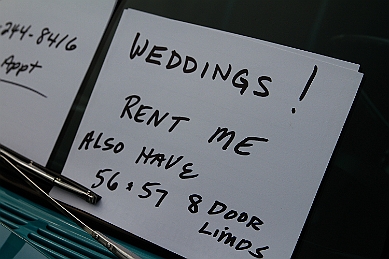 244-8416
Appt
WEDDINGS!
RENT ME
ALSO HAVE
56 & 57 8 DOOR
LIMOS